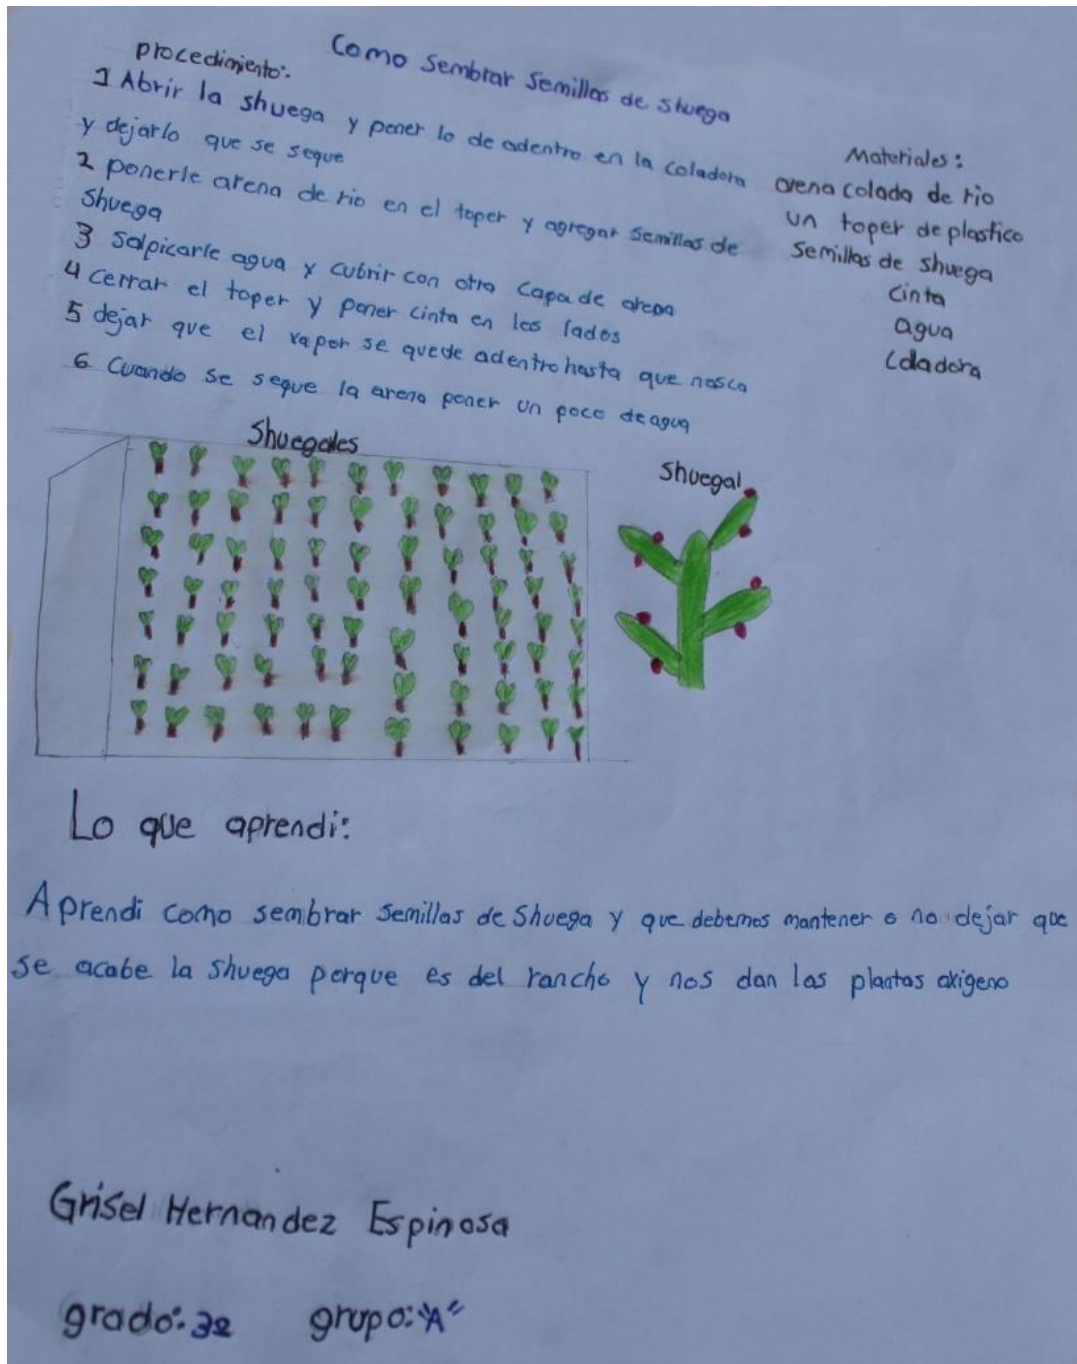 Como sembrar semillas de shuega
procedimiento:
1 Abrir la shuega y poner lo de adentro en la coladora
y dejarlo que se seque
2 ponerle arena de rio en el toper y agregar semillas de
shuega
3 salpicarle agua y cubrir con otra capa de arena
4 cerrar el toper y poner cinta en los lados
5 dejar que el vapor se quede adentro hasta que nasca
6 Cuando se seque la arena poner un poco de agua
Materiales:
arena colada de rio
un toper de plastico
semillas de shuega
cinta
agua
coladora
Shuegales
shuegal
Lo que aprendi:
Aprendi como sembrar semillas de shuega y que debemos mantener o no dejar que
se acabe la shuega porque es del rancho y nos dan las plantas oxigeno
Grisel Hernandez Espinosa
grado: 3º grupo: "A"